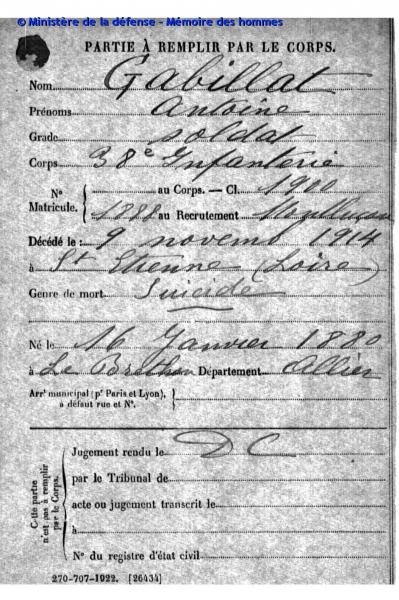 © Ministère de la défense - Mémoire des hommes
PARTIE À REMPLIR PAR LE CORPS.
Nom Gabillat
Prénoms Antoine
Grade soldat
Corps 38e Infanterie
N° Matricule. { au Corps. — Cl. 1900
1888 au Recrutement Montluçon
Décédé le : 9 novembre 1914
à St Etienne (Loire)
Genre de mort Suicidé
Né le 16 Janvier 1880
à Le Brethon Département Allier
Arrt municipal (pr Paris et Lyon), à défaut rue et N°. {
Cette partie n'est pas à remplir par le Corps.
Jugement rendu le DC
par le Tribunal de
acte ou jugement transcrit le
à
N° du registre d'état civil
270-707-1922. [26434]